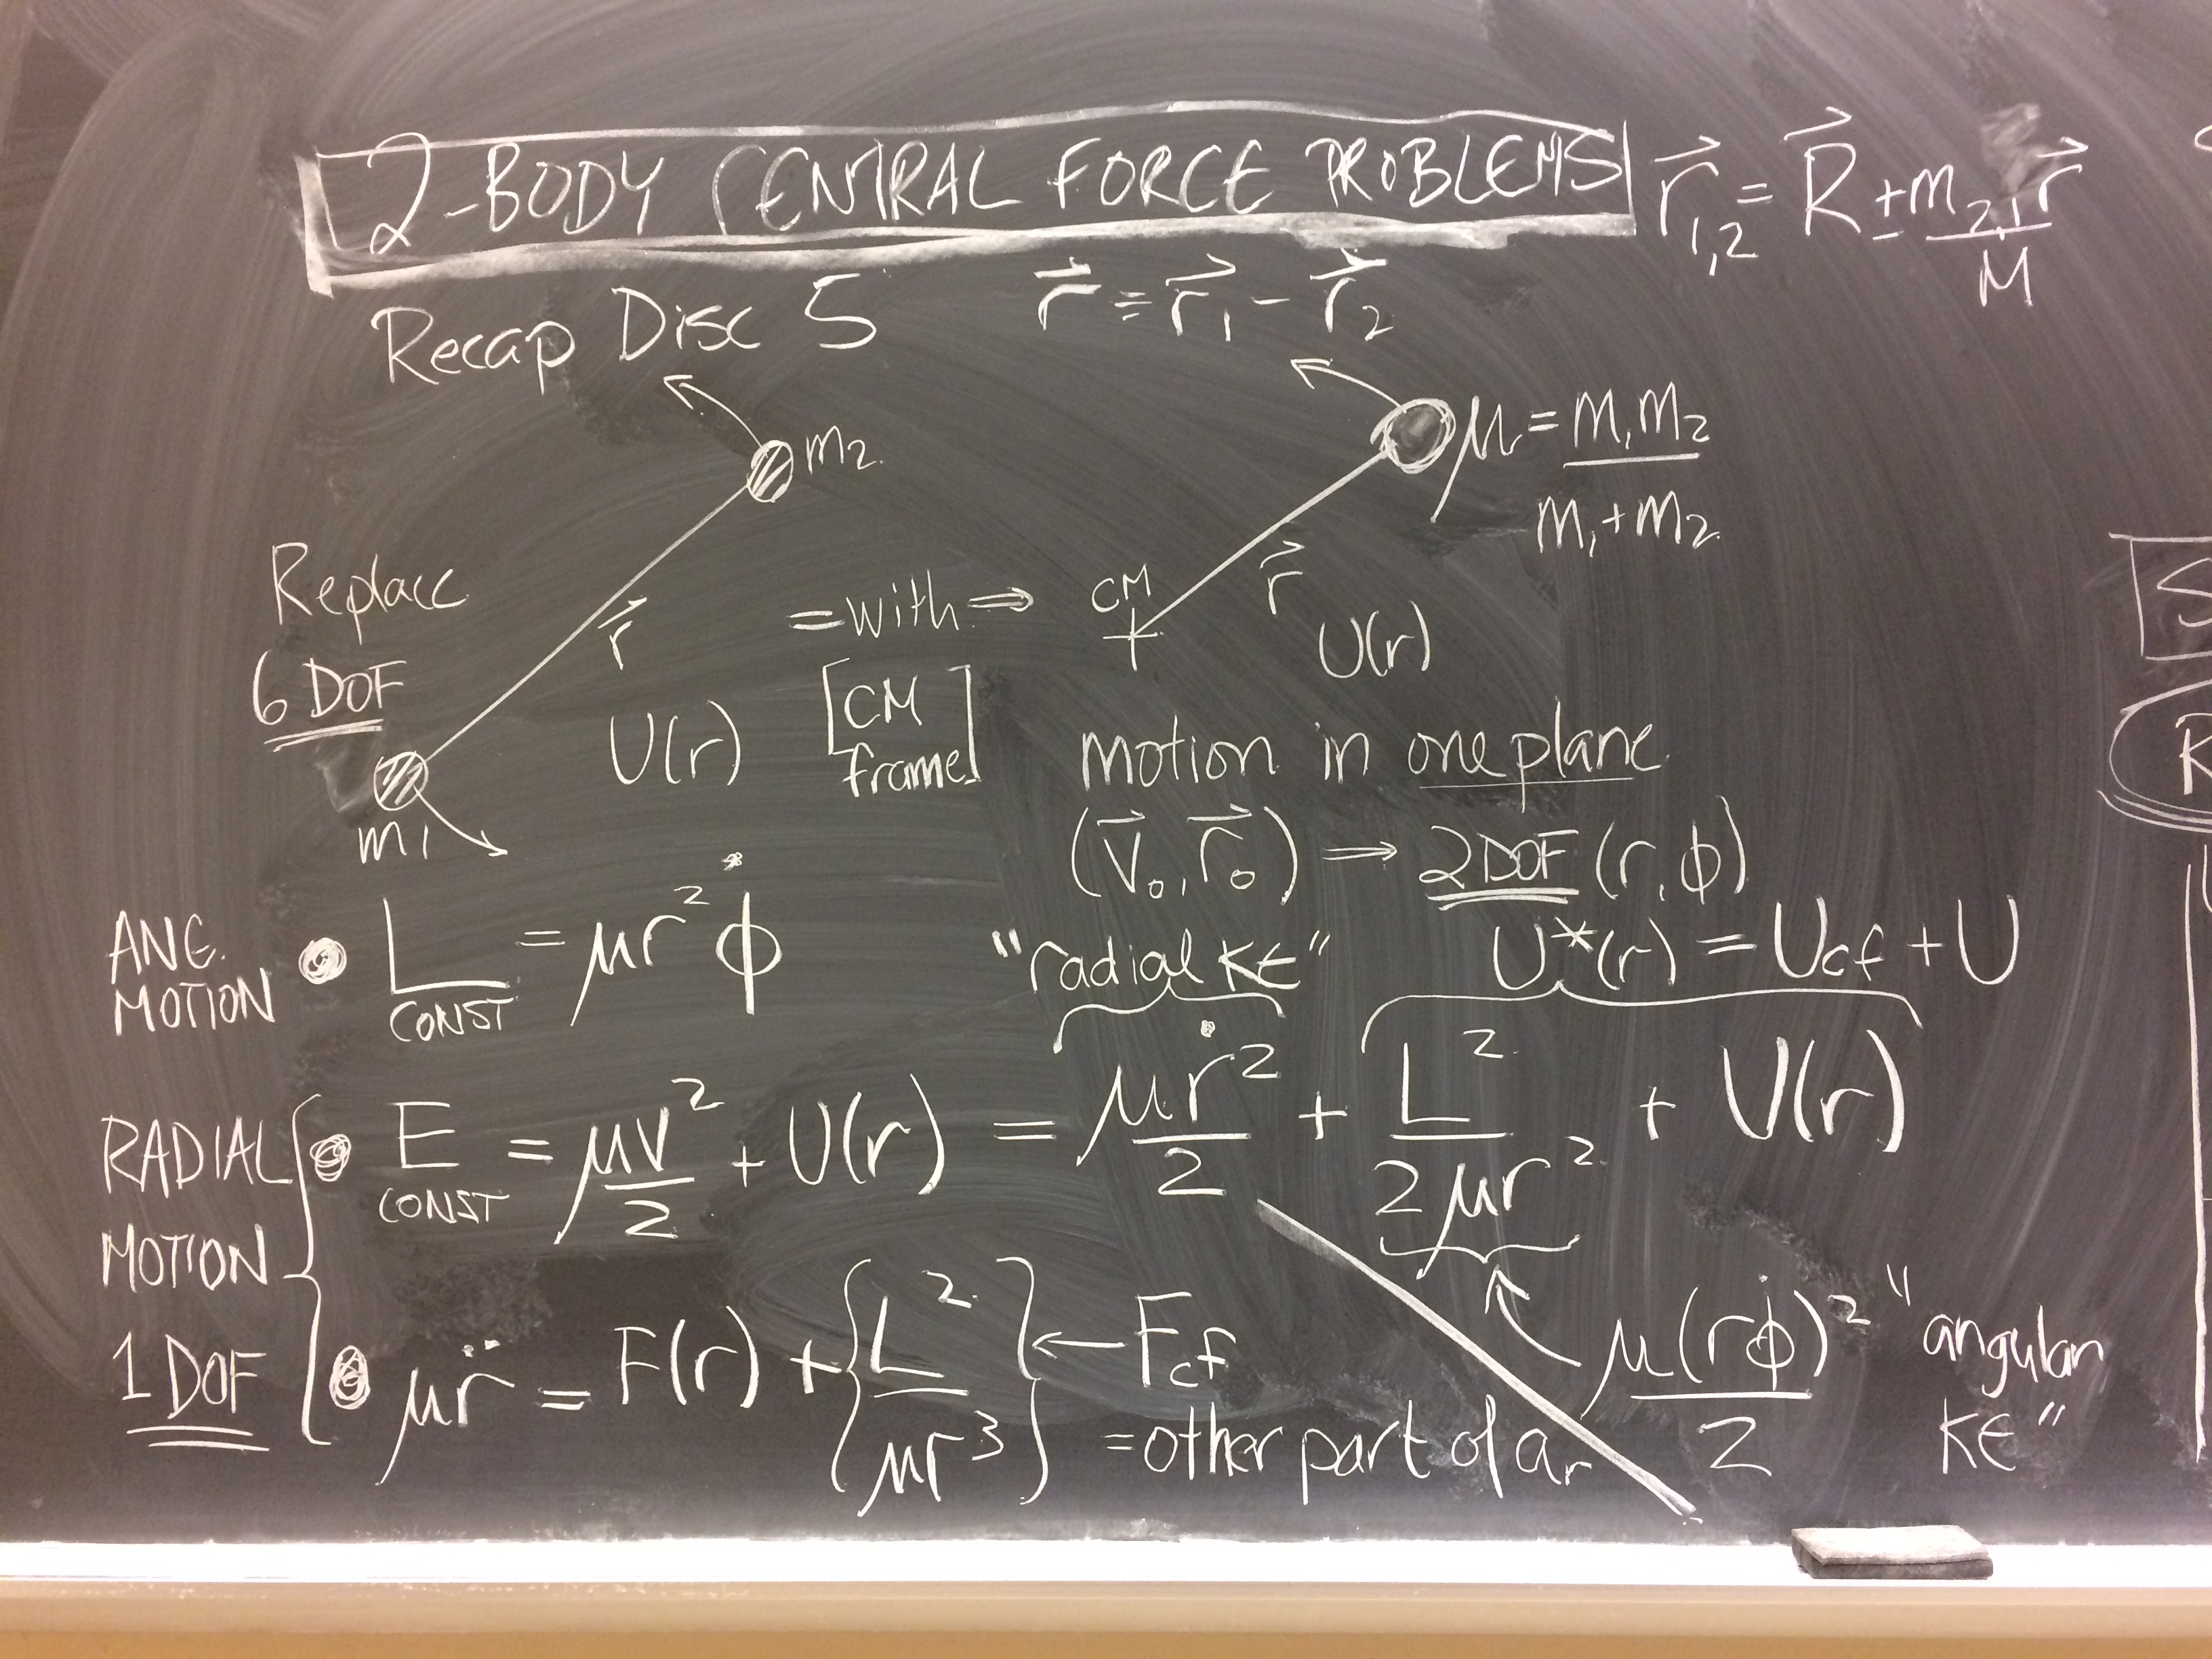 2-BODY CENTRAL FORCE PROBLEMS
r⃗₁,₂ = R⃗ ± m₂,₁ r⃗ / M
Recap Disc 5
r⃗ = r⃗₁ - r⃗₂
m₂
μ = m₁m₂ / m₁+m₂
Replace
6 DOF
r⃗
U(r)
m₁
=with⇒
[CM frame]
CM
r⃗
U(r)
motion in one plane
(v⃗₀, r⃗₀) → 2DOF (r, φ)
ANG. MOTION
• L = μr²φ̇
CONST
"radial KE"
U*(r) = Ucf + U
RADIAL MOTION
1 DOF
• E = μv²/2 + U(r) = μṙ²/2 + L²/2μr² + U(r)
CONST
• μr̈ = F(r) + {L²/μr³} ← Fcf
= other part of aᵣ
μ(rφ̇)²/2 "angular KE"
S
R